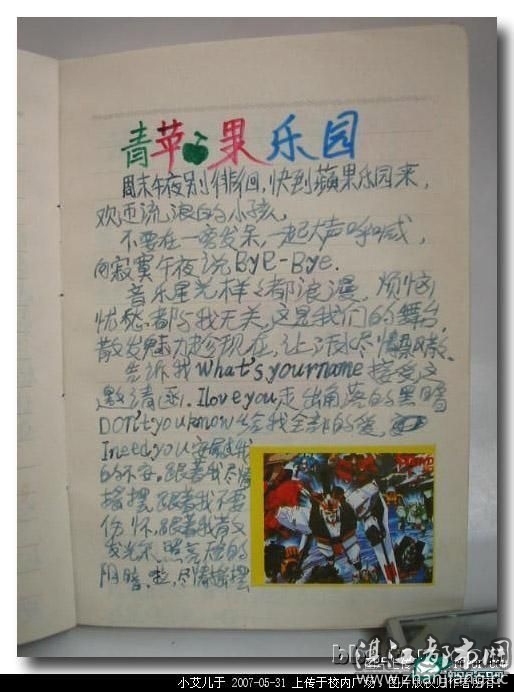 青苹果乐园
周末午夜别徘徊,快到蘋果乐园来,
欢迎流浪的小孩。
不要在一旁发呆,一起大声呼喊,
向寂寞午夜说Bye-Bye.
音乐星光样样都浪漫,烦恼
忧愁都与我无关,这是我们的舞台,
散发魅力趁现在,让汗水尽情
告诉我what's your name接受这
邀请函.I love you走出角落的黑暗
DON't you know给我全部的爱,
I need you 我
的不安.跟着我尽情
摇摆.跟着我不要
伤怀.跟着我散文
发光 照亮你的
阴暗.啦,尽情摇摆
湛江都市网
小艾儿于 2007-05-31 上传于校内广场,图片版权归作者所有.